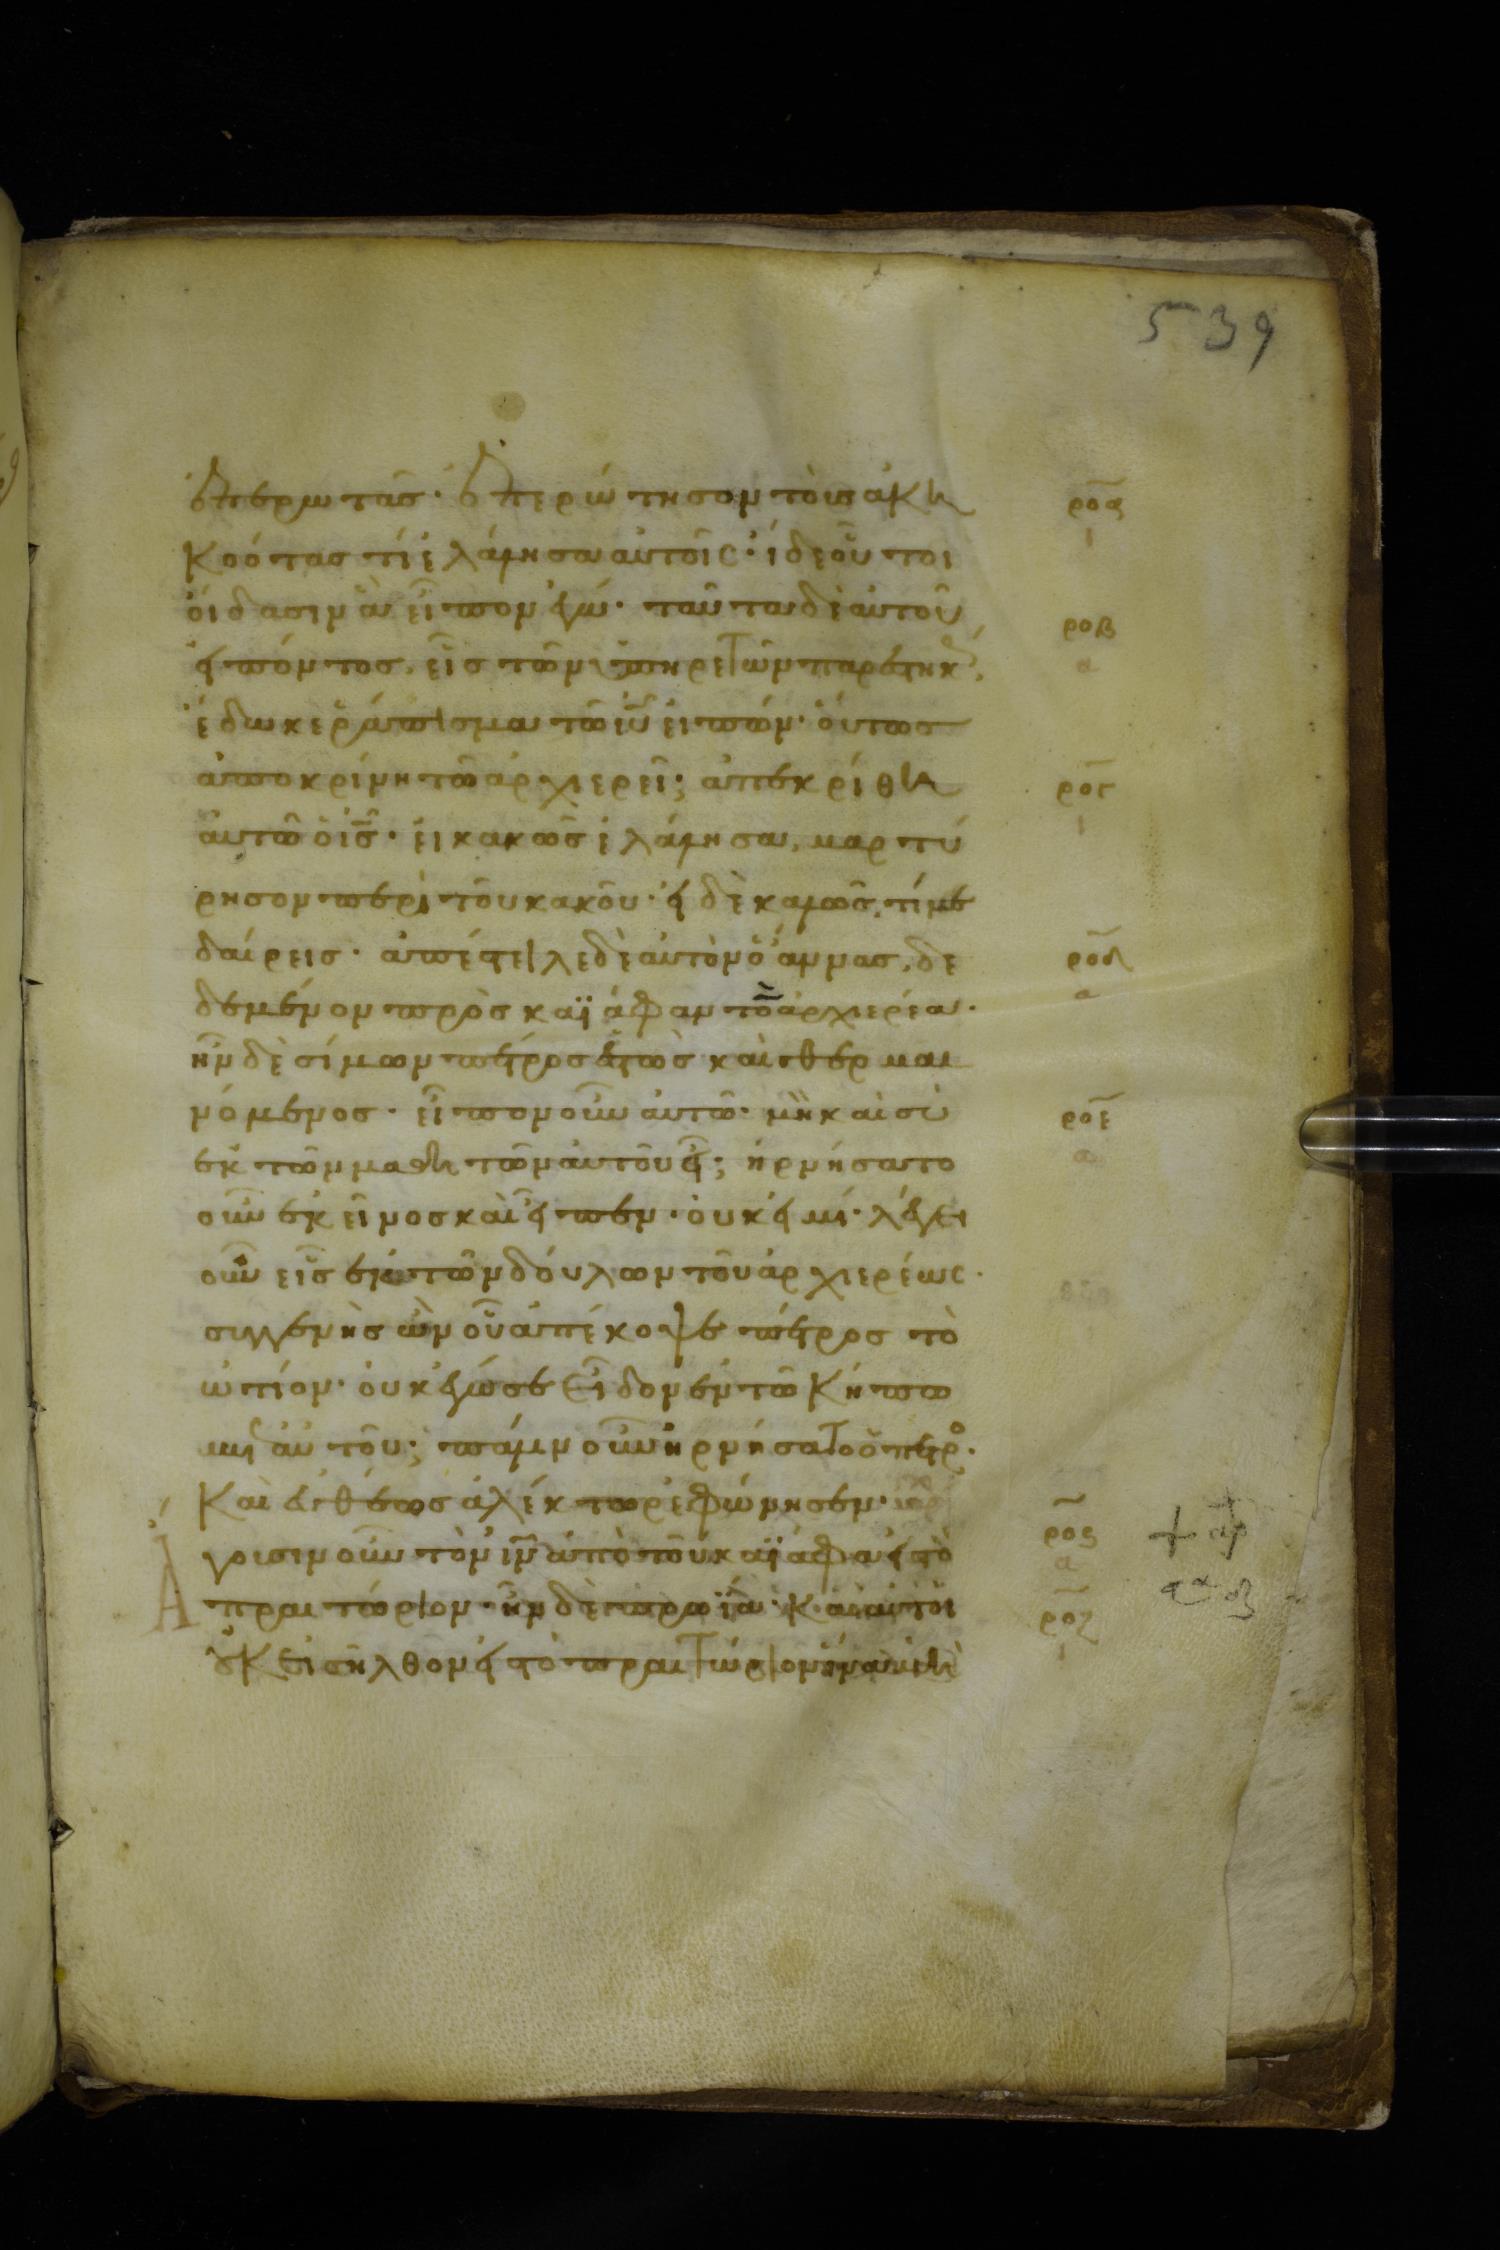 539
ἐπερωτᾶσ· ἐπερώτησον τοὺσ ἀκη
κοότασ τί ἐλάλησα αὐτοῖς· ἴδε οὗτοι
οἴδασιν ἃ εἶπον ἐγώ· ταῦτα δὲ αὐτοῦ
εἰπόντοσ, εἷσ τῶν ὑπηρετῶν παρεστηκ
ἔδωκε ῥάπισμα τῶ ιυ εἰπών· οὕτωσ
ἀποκρίνη τῶ ἀρχιερεῖ; ἀπεκρίθη
αὐτῶ ὁ ισ· εἰ κακῶσ ἐλάλησα, μαρτύ
ρησον περὶ τοῦ κακοῦ· εἰ δὲ καλῶσ, τί με
δαίρεισ· ἀπέστειλε δὲ αὐτὸν ὁ ἄννασ, δε
δεμένον πρὸσ καϊάφαν τὸν ἀρχιερέα·
ἦν δὲ σίμων πέτροσ ἑστὼσ καὶ θερμαι
νόμενοσ· εἶπον οὖν αὐτῶ· μὴ καὶ σὺ
ἐκ τῶν μαθητῶν αὐτοῦ εἶ; ἠρνήσατο
οὖν ἐκεῖνοσ καὶ εἶπεν· οὐκ εἰμί· λέγει
οὖν εἷσ ἐκ τῶν δούλων τοῦ ἀρχιερέως·
συγγενὴσ ὢν οὗ ἀπέκοψε πέτροσ τὸ
ὠτίον· οὐκ ἐγώ σε εἶδον ἐν τῶ κήπω
μετ αὐτοῦ; πάλιν οὖν ἠρνήσατο ὁ πέτρο·
καὶ εὐθέωσ ἀλέκτωρ ἐφώνησεν·
Ἄγουσιν οὖν τὸν ιν ἀπὸ τοῦ καϊάφα εἰσ τὸ
πραιτώριον· ἦν δὲ πρωΐα· καὶ αὐτοὶ
οὐκ εἰσῆλθον εἰσ τὸ πραιτώριον ἵνα μὴ
ροα
ι
ροβ
α
ρογ
ι
ροδ
α
ροε
α
ροϛ
α
ροζ
ι